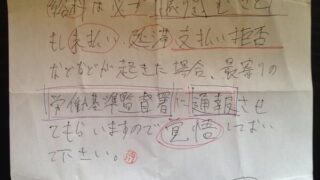 給料は必ず振り込むこと
もし未払い、延滞、支払い拒否
などなどが起きた場合、最寄りの
労働基準監督署に通報させ
てもらいますので覚悟しておい
て下さい。